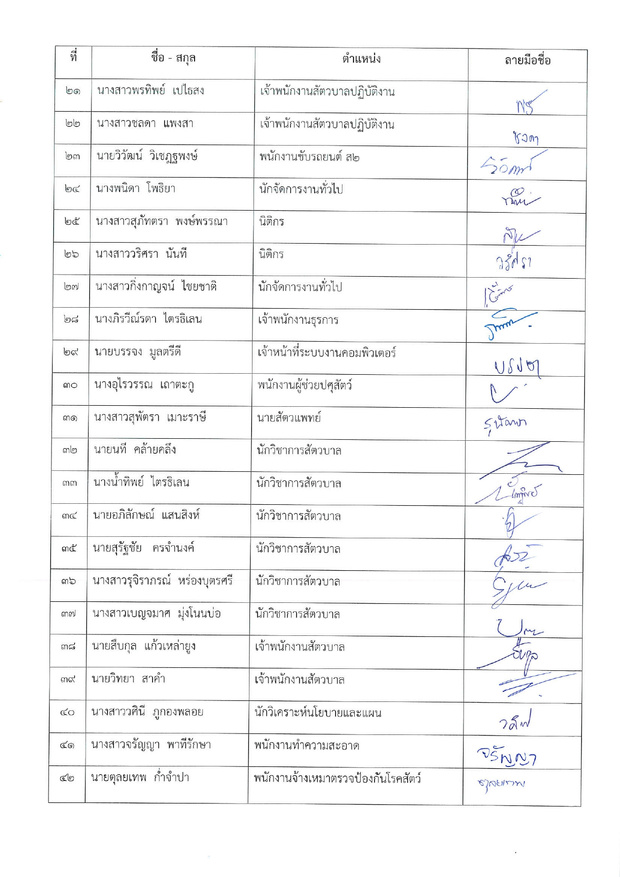 ที่ ชื่อ - สกุล ตำแหน่ง ลายมือชื่อ
๒๑ นางสาวพรทิพย์ เปไธสง เจ้าพนักงานสัตวบาลปฏิบัติงาน
๒๒ นางสาวชลดา แพงสา เจ้าพนักงานสัตวบาลปฏิบัติงาน ชลดา
๒๓ นายวิวัฒน์ วิเชฏฐพงษ์ พนักงานขับรถยนต์ ส๒
๒๔ นางพนิดา โพธิยา นักจัดการงานทั่วไป
๒๕ นางสาวสุภัทตรา พงษ์พรรณา นิติกร
๒๖ นางสาววริศรา นันที นิติกร วริศรา
๒๗ นางสาวกิ่งกาญจน์ ไชยชาติ นักจัดการงานทั่วไป
๒๘ นางภิรวีณ์รดา ไตรธิเลน เจ้าพนักงานธุรการ
๒๙ นายบรรจง มูลตรีดี เจ้าหน้าที่ระบบงานคอมพิวเตอร์
๓๐ นางอุไรวรรณ เถาตะกู พนักงานผู้ช่วยปศุสัตว์
๓๑ นางสาวสุพัตรา เมาะราษี นายสัตวแพทย์
๓๒ นายนที คล้ายคลึง นักวิชาการสัตวบาล
๓๓ นางน้ำทิพย์ ไตรธิเลน นักวิชาการสัตวบาล
๓๔ นายอภิลักษณ์ แสนสิงห์ นักวิชาการสัตวบาล
๓๕ นายสุรัฐชัย ครจำนงค์ นักวิชาการสัตวบาล
๓๖ นางสาวรุจิราภรณ์ หร่องบุตรศรี นักวิชาการสัตวบาล
๓๗ นางสาวเบญจมาศ มุ่งโนนบ่อ นักวิชาการสัตวบาล
๓๘ นายสืบกุล แก้วเหล่ายูง เจ้าพนักงานสัตวบาล
๓๙ นายวิทยา สาคำ เจ้าพนักงานสัตวบาล
๔๐ นางสาววศินี ภูกองพลอย นักวิเคราะห์นโยบายและแผน
๔๑ นางสาวจรัญญา พาทีรักษา พนักงานทำความสะอาด จรัญญา
๔๒ นายตุลยเทพ ก่ำจำปา พนักงานจ้างเหมาตรวจป้องกันโรคสัตว์